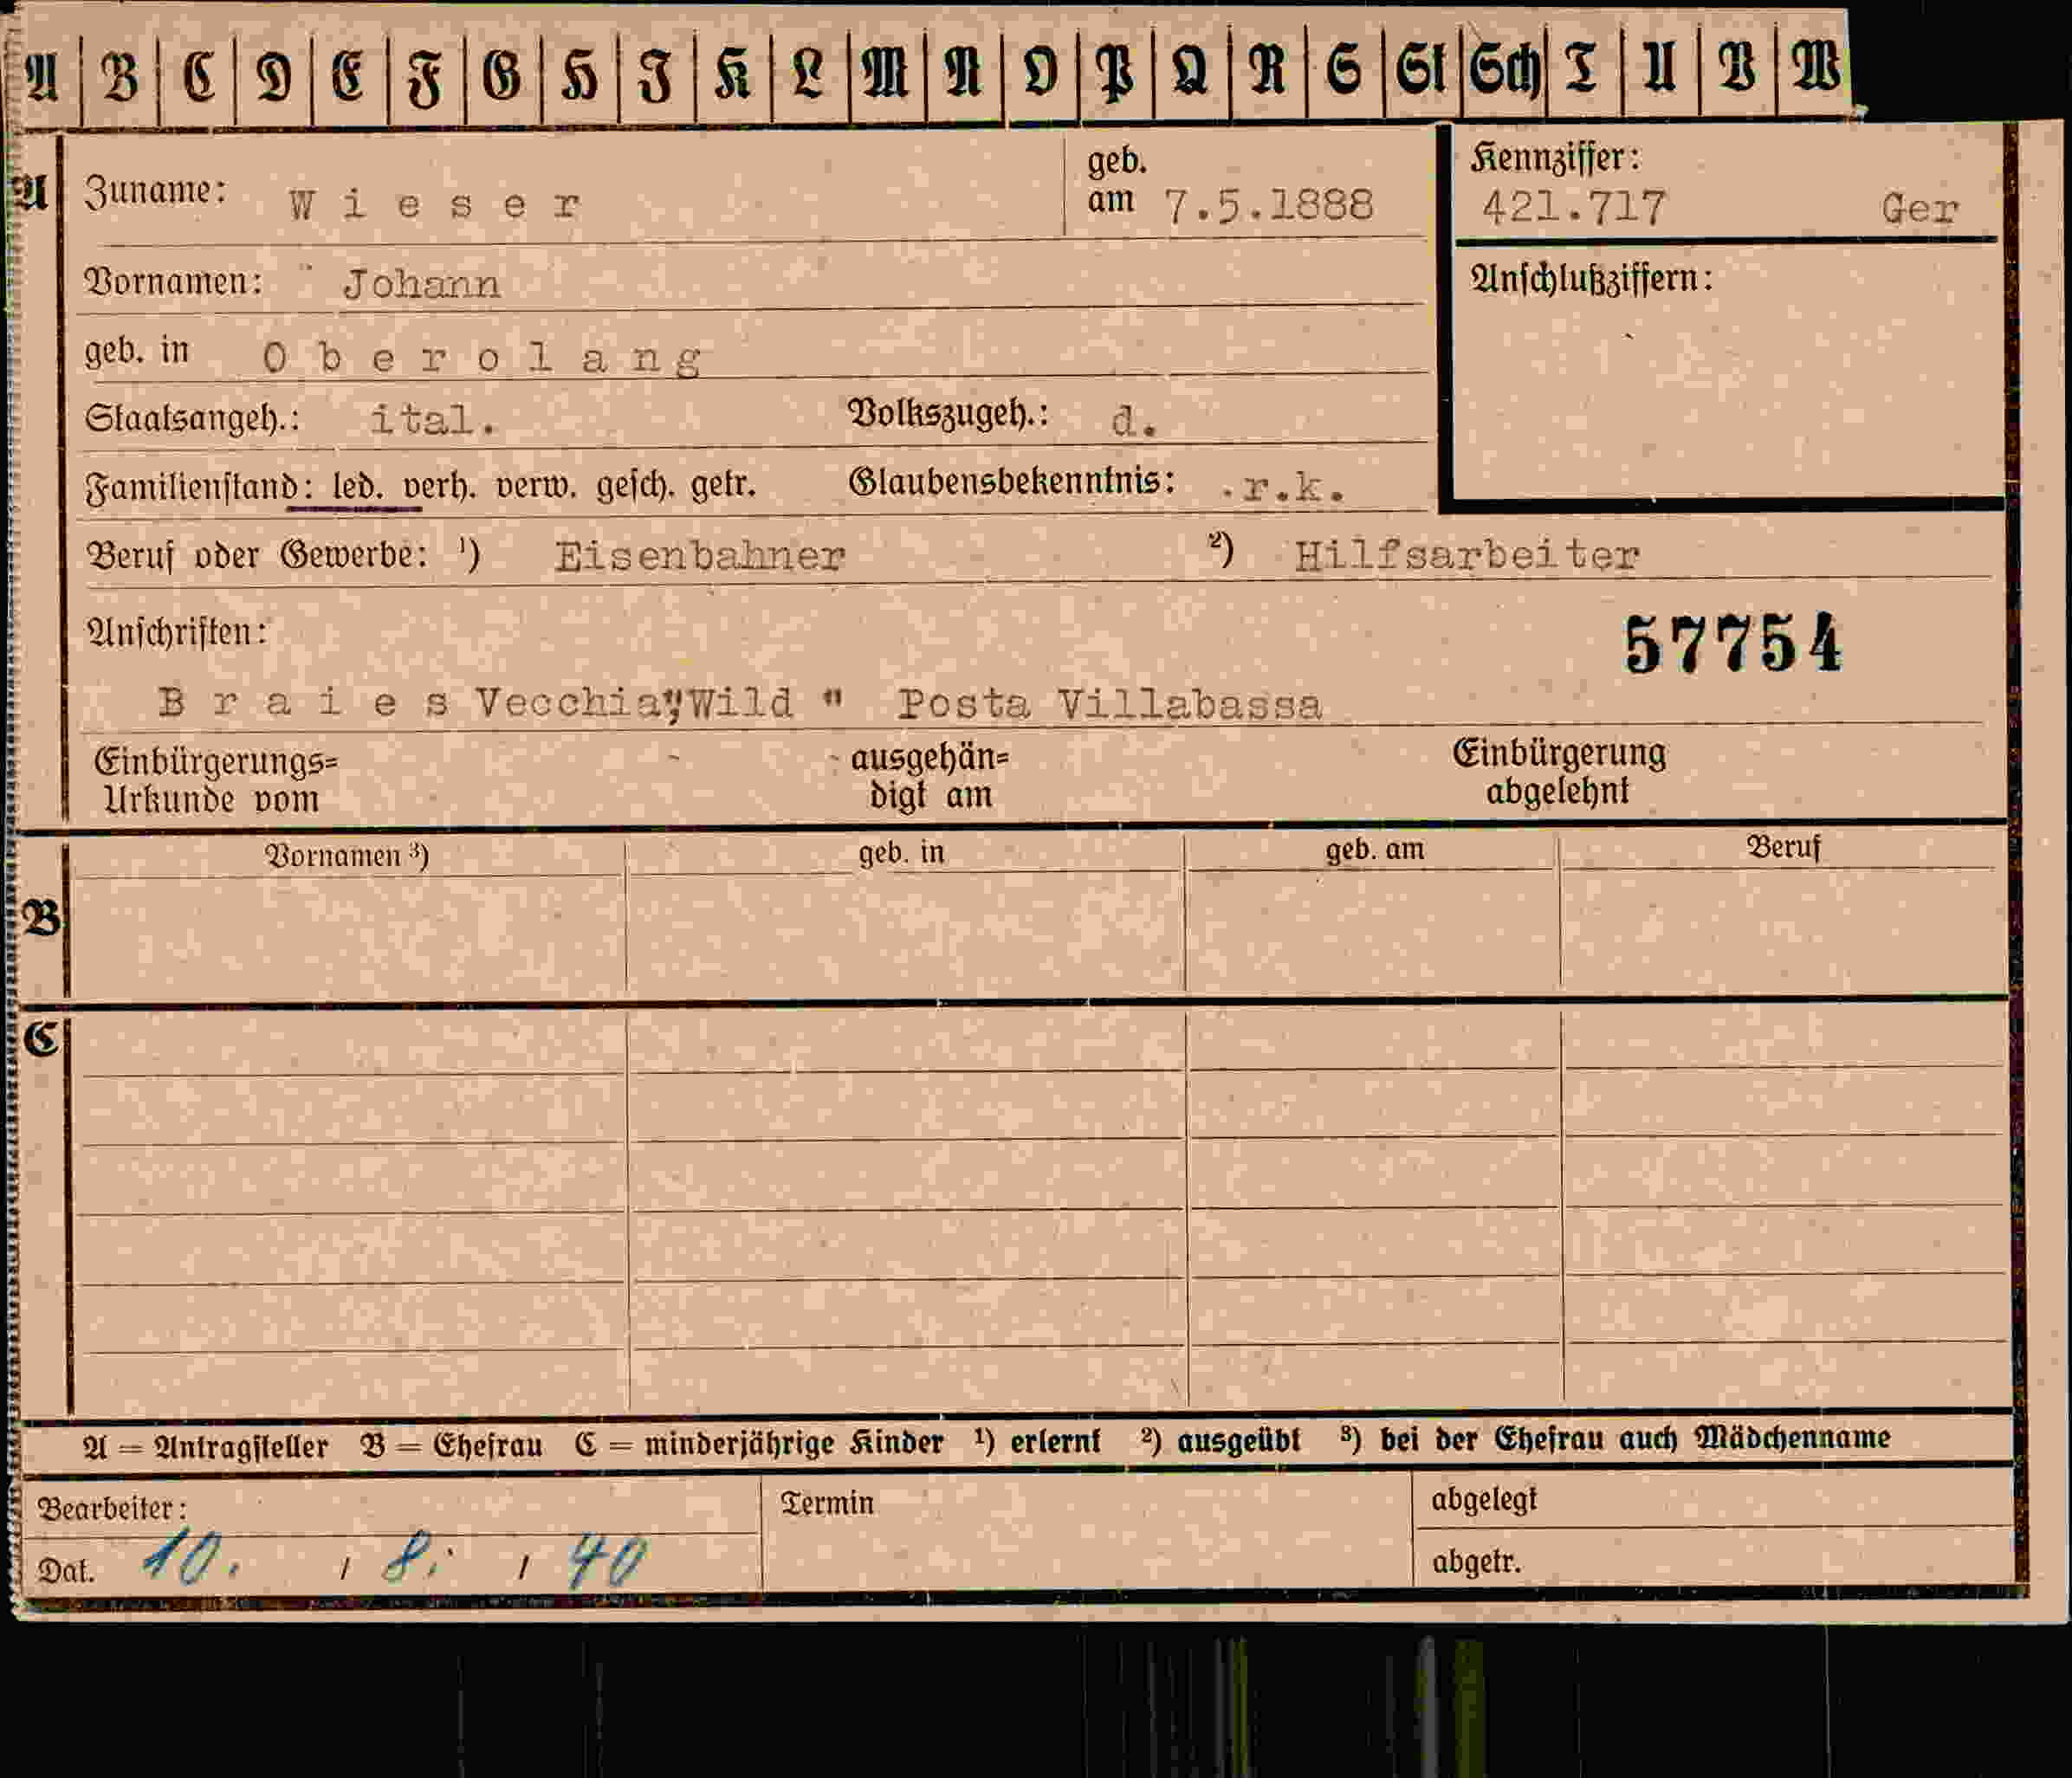 A B C D E F G H I K L M N O P Q R S St Sch T U V W
A Zuname: Wieser geb. am 7.5.1888 Kennziffer: 421.717 Ger
Vornamen: Johann Anschlußziffern:
geb. in Oberolang
Staatsangeh.: ital. Volkszugeh.: d.
Familienstand: led. verh. verw. gesch. getr. Glaubensbekenntnis: r.k.
Beruf oder Gewerbe: ¹) Eisenbahner ²) Hilfsarbeiter
Anschriften: 57754
Braies Vecchia,"Wild " Posta Villabassa
Einbürgerungs= ausgehän= Einbürgerung
Urkunde vom digt am abgelehnt
Vornamen ³) geb. in geb. am Beruf
B
C
A = Antragsteller B = Ehefrau C = minderjährige Kinder ¹) erlernt ²) ausgeübt ³) bei der Ehefrau auch Mädchenname
Bearbeiter: Termin abgelegt
Dat. 10. / 8. / 40 abgetr.